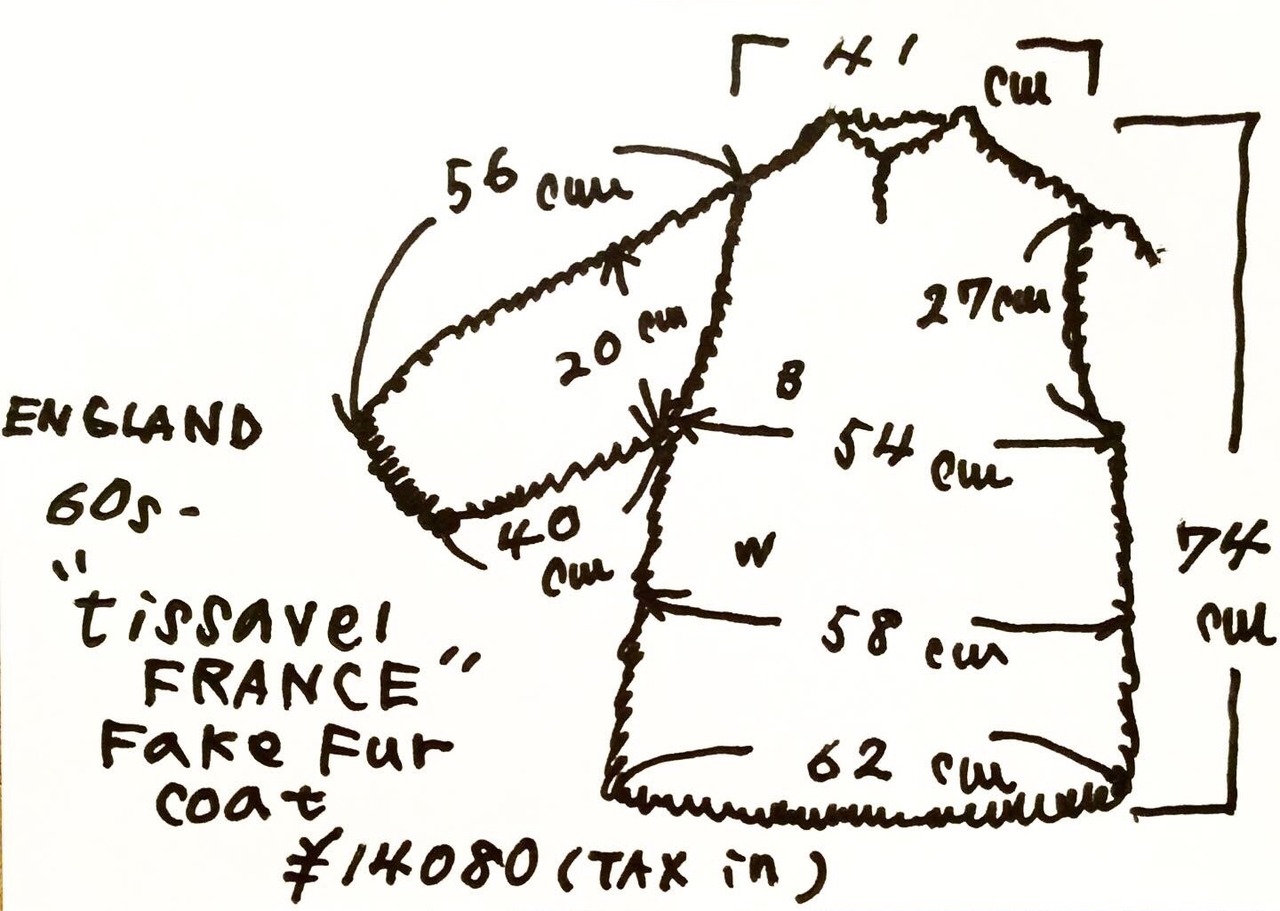 41
cm
56 cm
27cm
20 cm
B
54 cm
40
cm
W
58 cm
62 cm
74
cm
ENGLAND
60s-
"
tissavel
FRANCE"
Fake Fur
coat
¥14080 (TAX in)